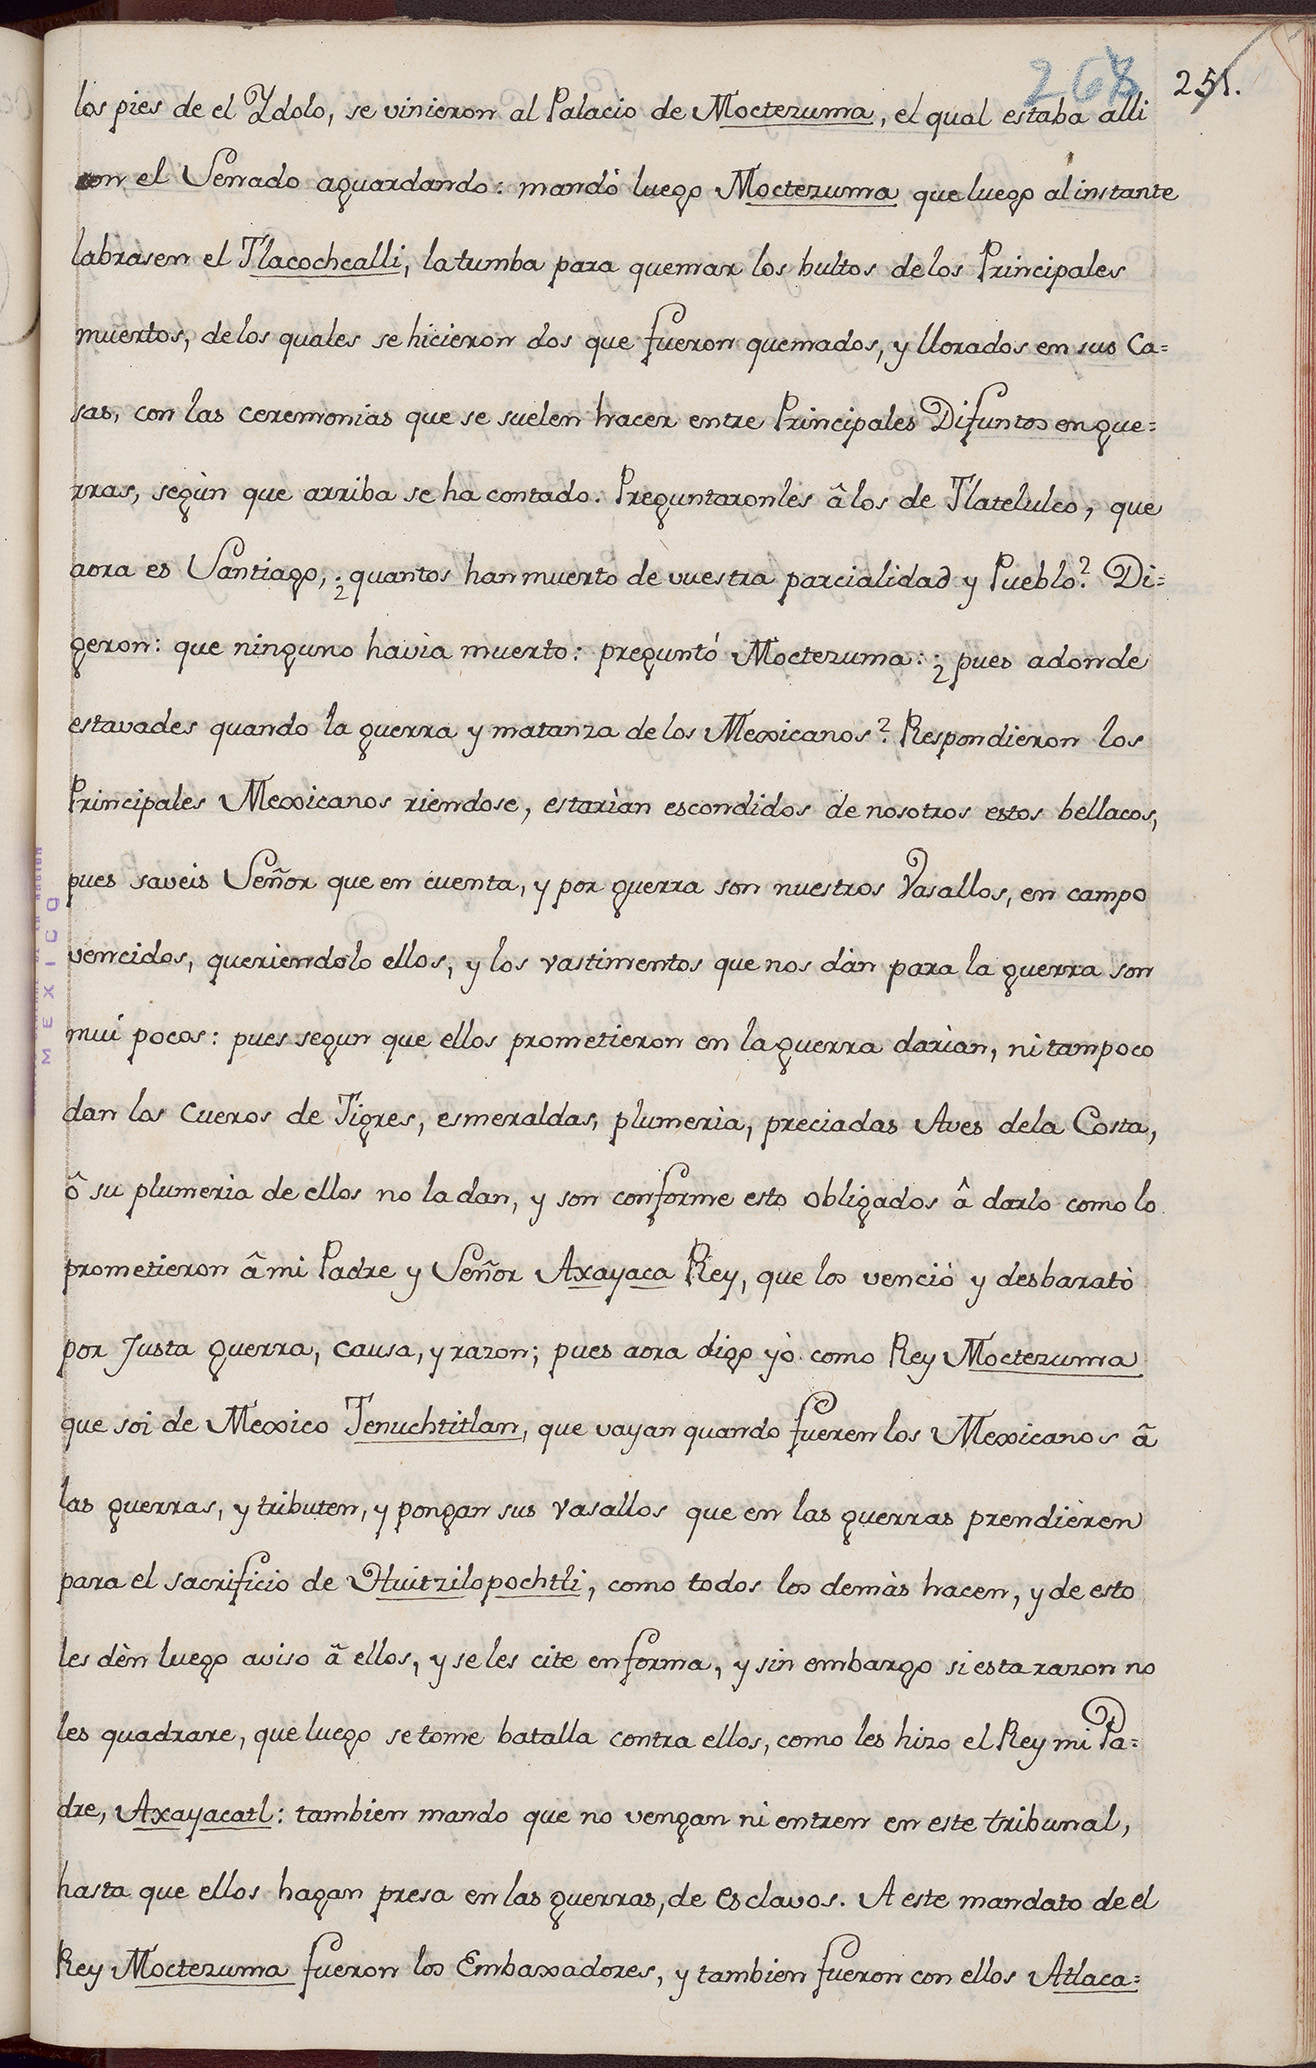 268 251.
los pies de el Ydolo, se vinieron al Palacio de Moctezuma, el qual estaba alli
con el Senado aguardando: mandò luego Moctezuma que luego al instante
labrasen el Tlacochcalli, la tumba para quemar los bultos de los Principales
muertos, de los quales se hicieron dos que fueron quemados, y llorados en sus Ca=
sas, con las ceremonias que se suelen hacer entre Principales Difuntos en gue=
rras, segùn que arriba se ha contado. Preguntaronles â los de Tlateluleo, que
aora es Santiago, ¿quantos han muerto de vuestra parcialidad y Pueblo? Di=
geron: que ninguno havia muerto: preguntó Moctezuma: ¿pues adonde
estavades quando la guerra y matanza de los Mexicanos? Respondieron los
Principales Mexicanos riendose, estarian escondidos de nosotros estos bellacos,
pues saveis Señor que en cuenta, y por guerra son nuestros Vasallos, en campo
vencidos, queriendolo ellos, y los vastimentos que nos dàn para la guerra son
mui pocos: pues segun que ellos prometieron en la guerra darian, ni tampoco
dan los Cueros de Tigres, esmeraldas, plumerìa, preciadas Aves de la Costa,
ô su plumerìa de ellos no la dan, y son conforme esto obligados â darlo como lo
prometieron â mi Padre y Señor Axayaca Rey, que los venciò y desbaratò
por Justa guerra, causa, y razon; pues aora digo yò como Rey Moctezuma
que soi de Mexico Tenuchtitlan, que vayan quando fueren los Mexicanos â
las guerras, y tributen, y pongan sus Vasallos que en las guerras prendièren
para el sacrificio de Huitzilopochtli, como todos los demàs hacen, y de esto
les dèn luego aviso â ellos, y se les cite en forma, y sin embargo si esta razon no
les quadrare, que luego se tome batalla contra ellos, como les hizo el Rey mi Pa=
dre, Axayacatl: tambien mando que no vengan ni entren en este tribunal,
hasta que ellos hagan presa en las guerras, de esclavos. A este mandato de el
Rey Moctezuma fueron los Embaxadores, y tambien fueron con ellos Atlaca=
MEXICO